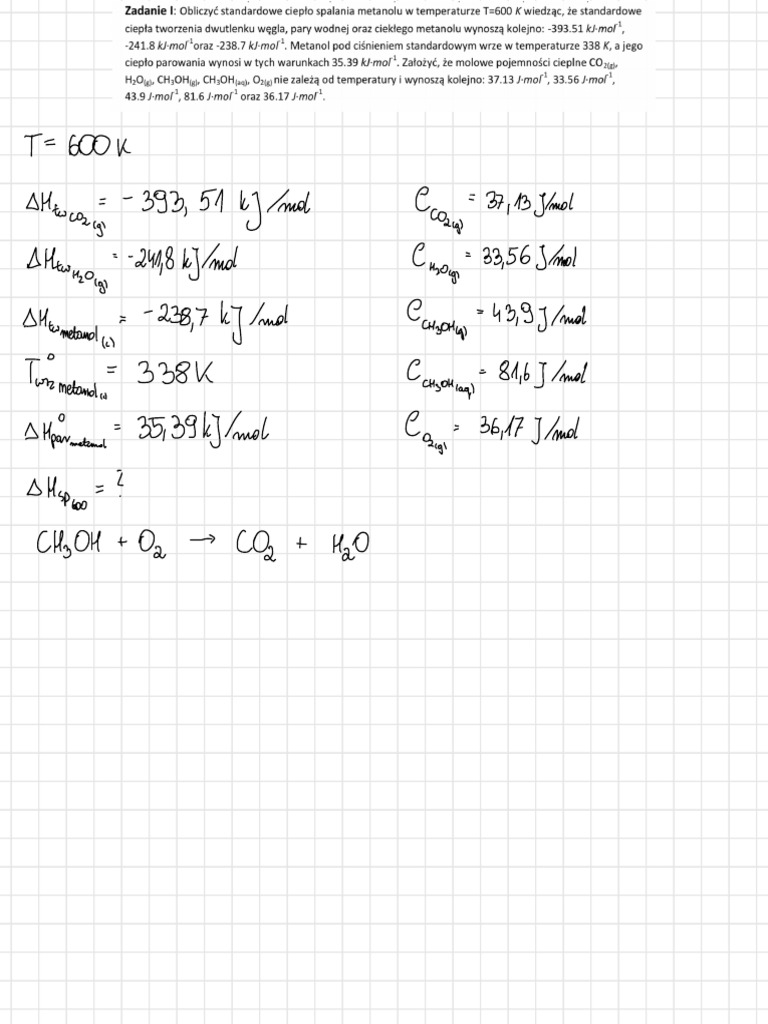 Zadanie I: Obliczyć standardowe ciepło spalania metanolu w temperaturze T=600 K wiedząc, że standardowe
ciepła tworzenia dwutlenku węgla, pary wodnej oraz ciekłego metanolu wynoszą kolejno: -393.51 kJ·mol⁻¹,
-241.8 kJ·mol⁻¹oraz -238.7 kJ·mol⁻¹. Metanol pod ciśnieniem standardowym wrze w temperaturze 338 K, a jego
ciepło parowania wynosi w tych warunkach 35.39 kJ·mol⁻¹. Założyć, że molowe pojemności cieplne CO₂₍g₎,
H₂O₍g₎, CH₃OH₍g₎, CH₃OH₍aq₎, O₂₍g₎ nie zależą od temperatury i wynoszą kolejno: 37.13 J·mol⁻¹, 33.56 J·mol⁻¹,
43.9 J·mol⁻¹, 81.6 J·mol⁻¹ oraz 36.17 J·mol⁻¹.
T = 600 K
ΔH tw CO₂(g) = - 393,51 kJ/mol C CO₂(g) = 37,13 J/mol
ΔH tw H₂O(g) = -241,8 kJ/mol C H₂O(g) = 33,56 J/mol
ΔH tw metanol (c) = - 238,7 kJ/mol C CH₃OH(g) = 43,9 J/mol
T° wrz metanol = 338 K C CH₃OH(aq) = 81,6 J/mol
ΔH° par metanol = 35,39 kJ/mol C O₂(g) = 36,17 J/mol
ΔH sp 600 = ?
CH₃OH + O₂ → CO₂ + H₂O